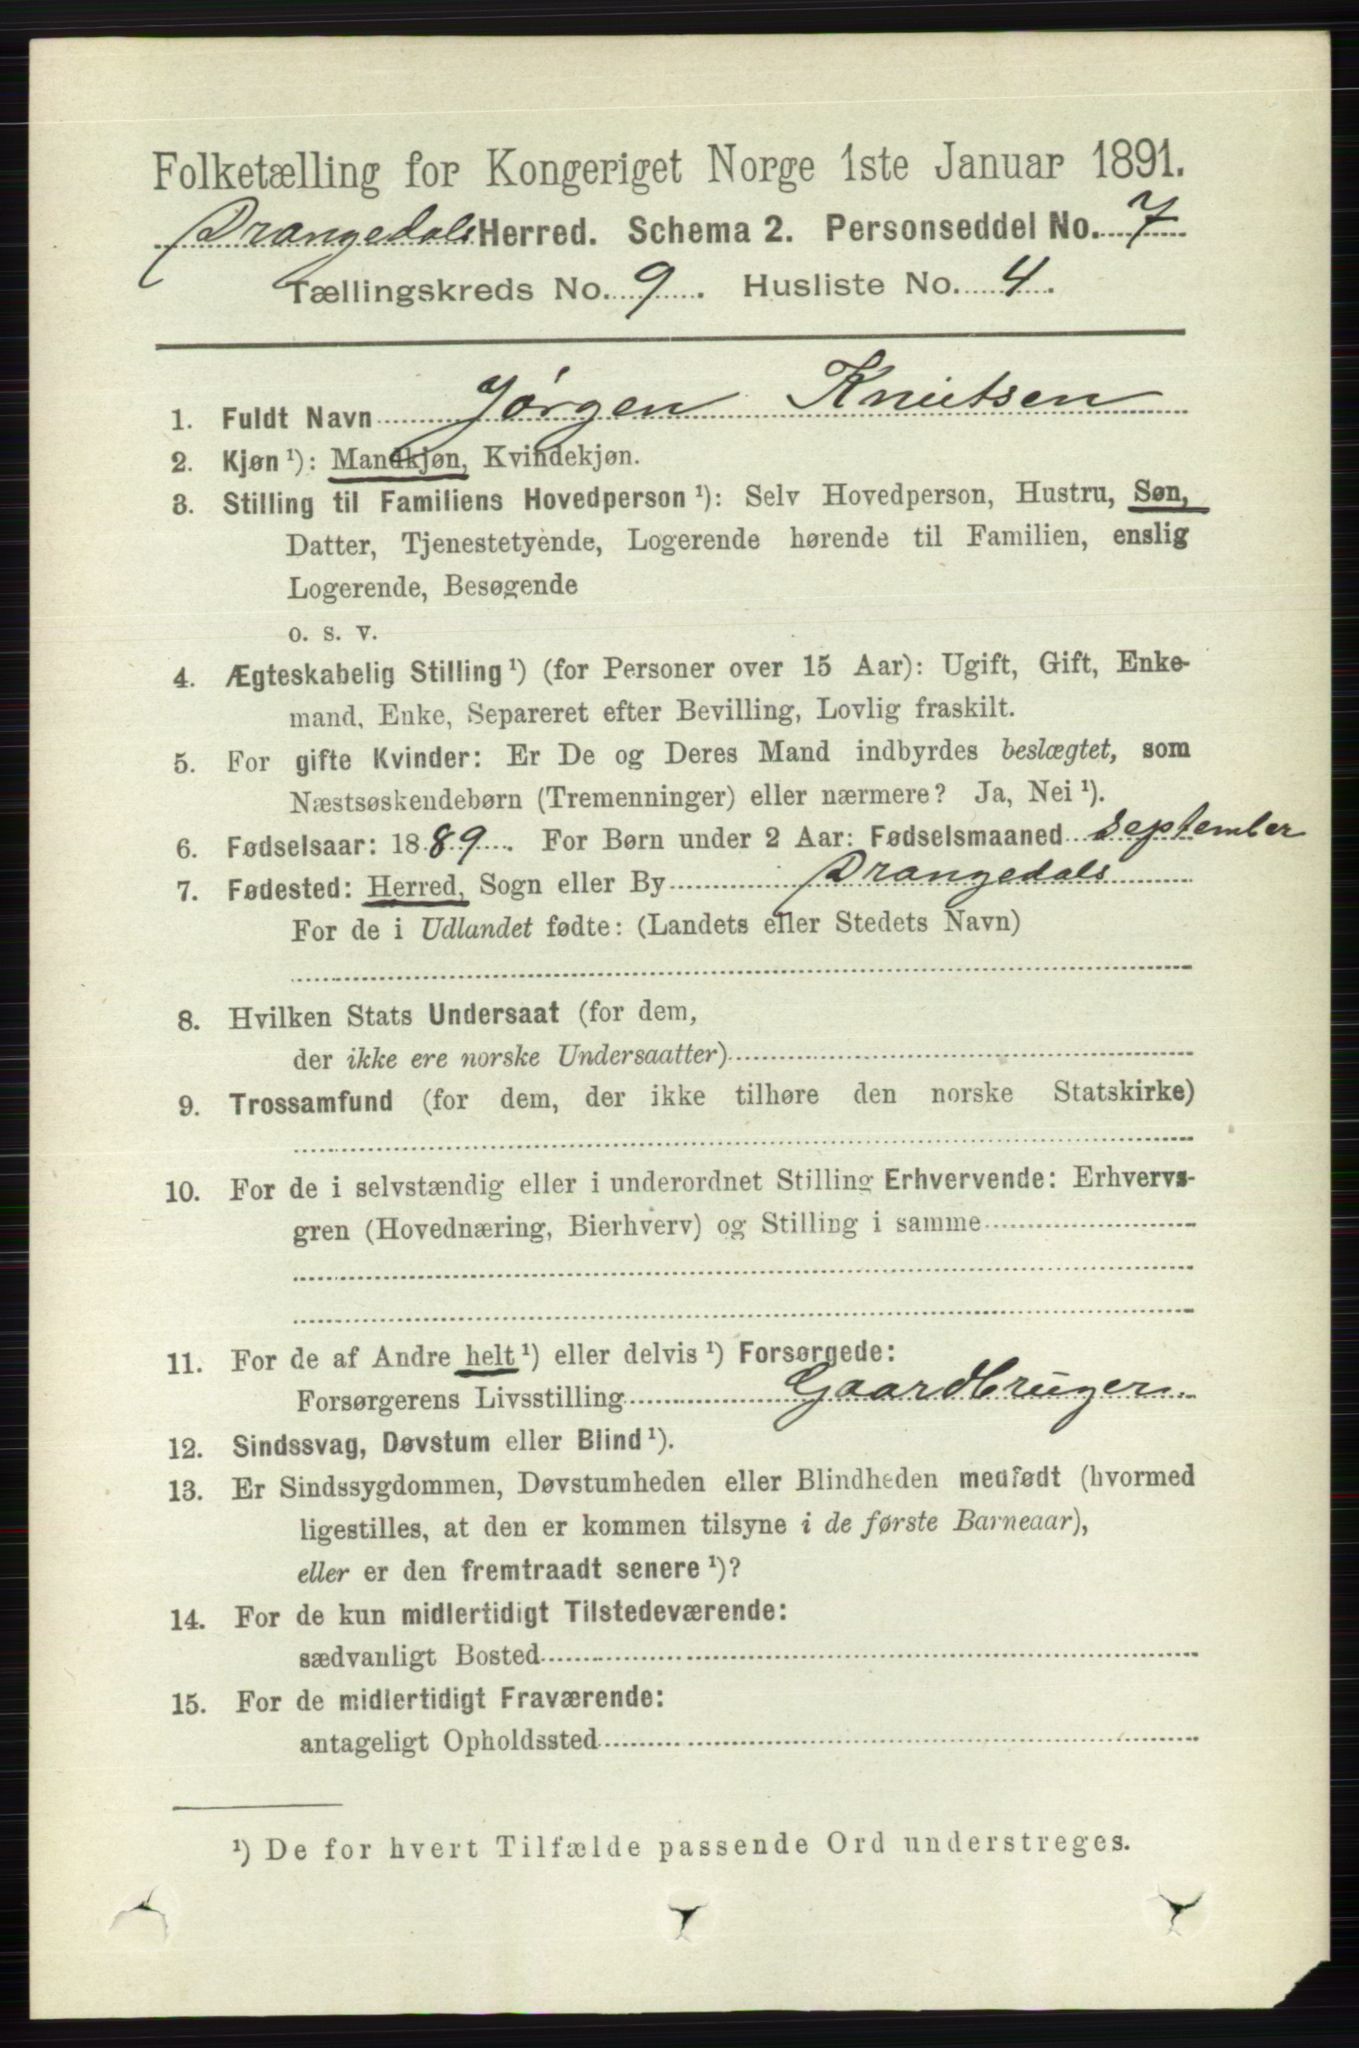 Folketælling for Kongeriget Norge 1ste Januar 1891.
Drangedals Herred. Schema 2. Personseddel No. 7
Tællingskreds No. 9. Husliste No. 4.
1. Fuldt Navn Jørgen Knutsen
2. Kjøn ¹): Mandkjøn, Kvindekjøn.
3. Stilling til Familiens Hovedperson ¹): Selv Hovedperson, Hustru, Søn,
Datter, Tjenestetyende, Logerende hørende til Familien, enslig
Logerende, Besøgende
o. s. v.
4. Ægteskabelig Stilling ¹) (for Personer over 15 Aar): Ugift, Gift, Enke-
mand, Enke, Separeret efter Bevilling, Lovlig fraskilt.
5. For gifte Kvinder: Er De og Deres Mand indbyrdes beslægtet, som
Næstsøskendebørn (Tremenninger) eller nærmere? Ja, Nei ¹).
6. Fødselsaar: 1889. For Børn under 2 Aar: Fødselsmaaned September
7. Fødested: Herred, Sogn eller By Drangedals
For de i Udlandet fødte: (Landets eller Stedets Navn)
8. Hvilken Stats Undersaat (for dem,
der ikke ere norske Undersaatter)
9. Trossamfund (for dem, der ikke tilhøre den norske Statskirke)
10. For de i selvstændig eller i underordnet Stilling Erhvervende: Erhvervs-
gren (Hovednæring, Bierhverv) og Stilling i samme
11. For de af Andre helt ¹) eller delvis ¹) Forsørgede:
Forsørgerens Livsstilling Gaardbruger.
12. Sindssvag, Døvstum eller Blind ¹).
13. Er Sindssygdommen, Døvstumheden eller Blindheden medfødt (hvormed
ligestilles, at den er kommen tilsyne i de første Barneaar),
eller er den fremtraadt senere ¹)?
14. For de kun midlertidigt Tilstedeværende:
sædvanligt Bosted
15. For de midlertidigt Fraværende:
antageligt Opholdssted
¹) De for hvert Tilfælde passende Ord understreges.